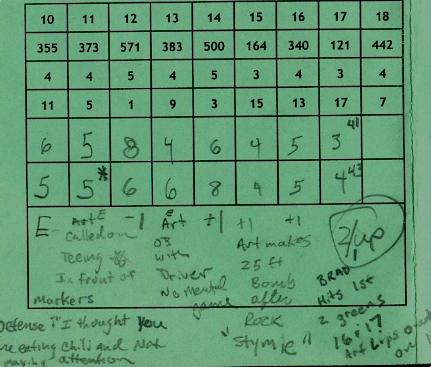 10 11 12 13 14 15 16 17 18
355 373 571 383 500 164 340 121 442
4 4 5 4 5 3 4 3 4
11 5 1 9 3 15 13 17 7
6 5 8 4 6 4 5 3 41
5 5* 6 6 8 4 5 4 43
E Art E -1 E Art ±1 +1 +1 2/up
Calledon 03 Art makes
Teeing with 25 ft
In front of Driver Bomb BRAD
markers No mental game after Hits 1st
Defense: "I thought You Rock 2 greens
eating chili and Not "Stymie" 16 & 17
paying attention Art Lips